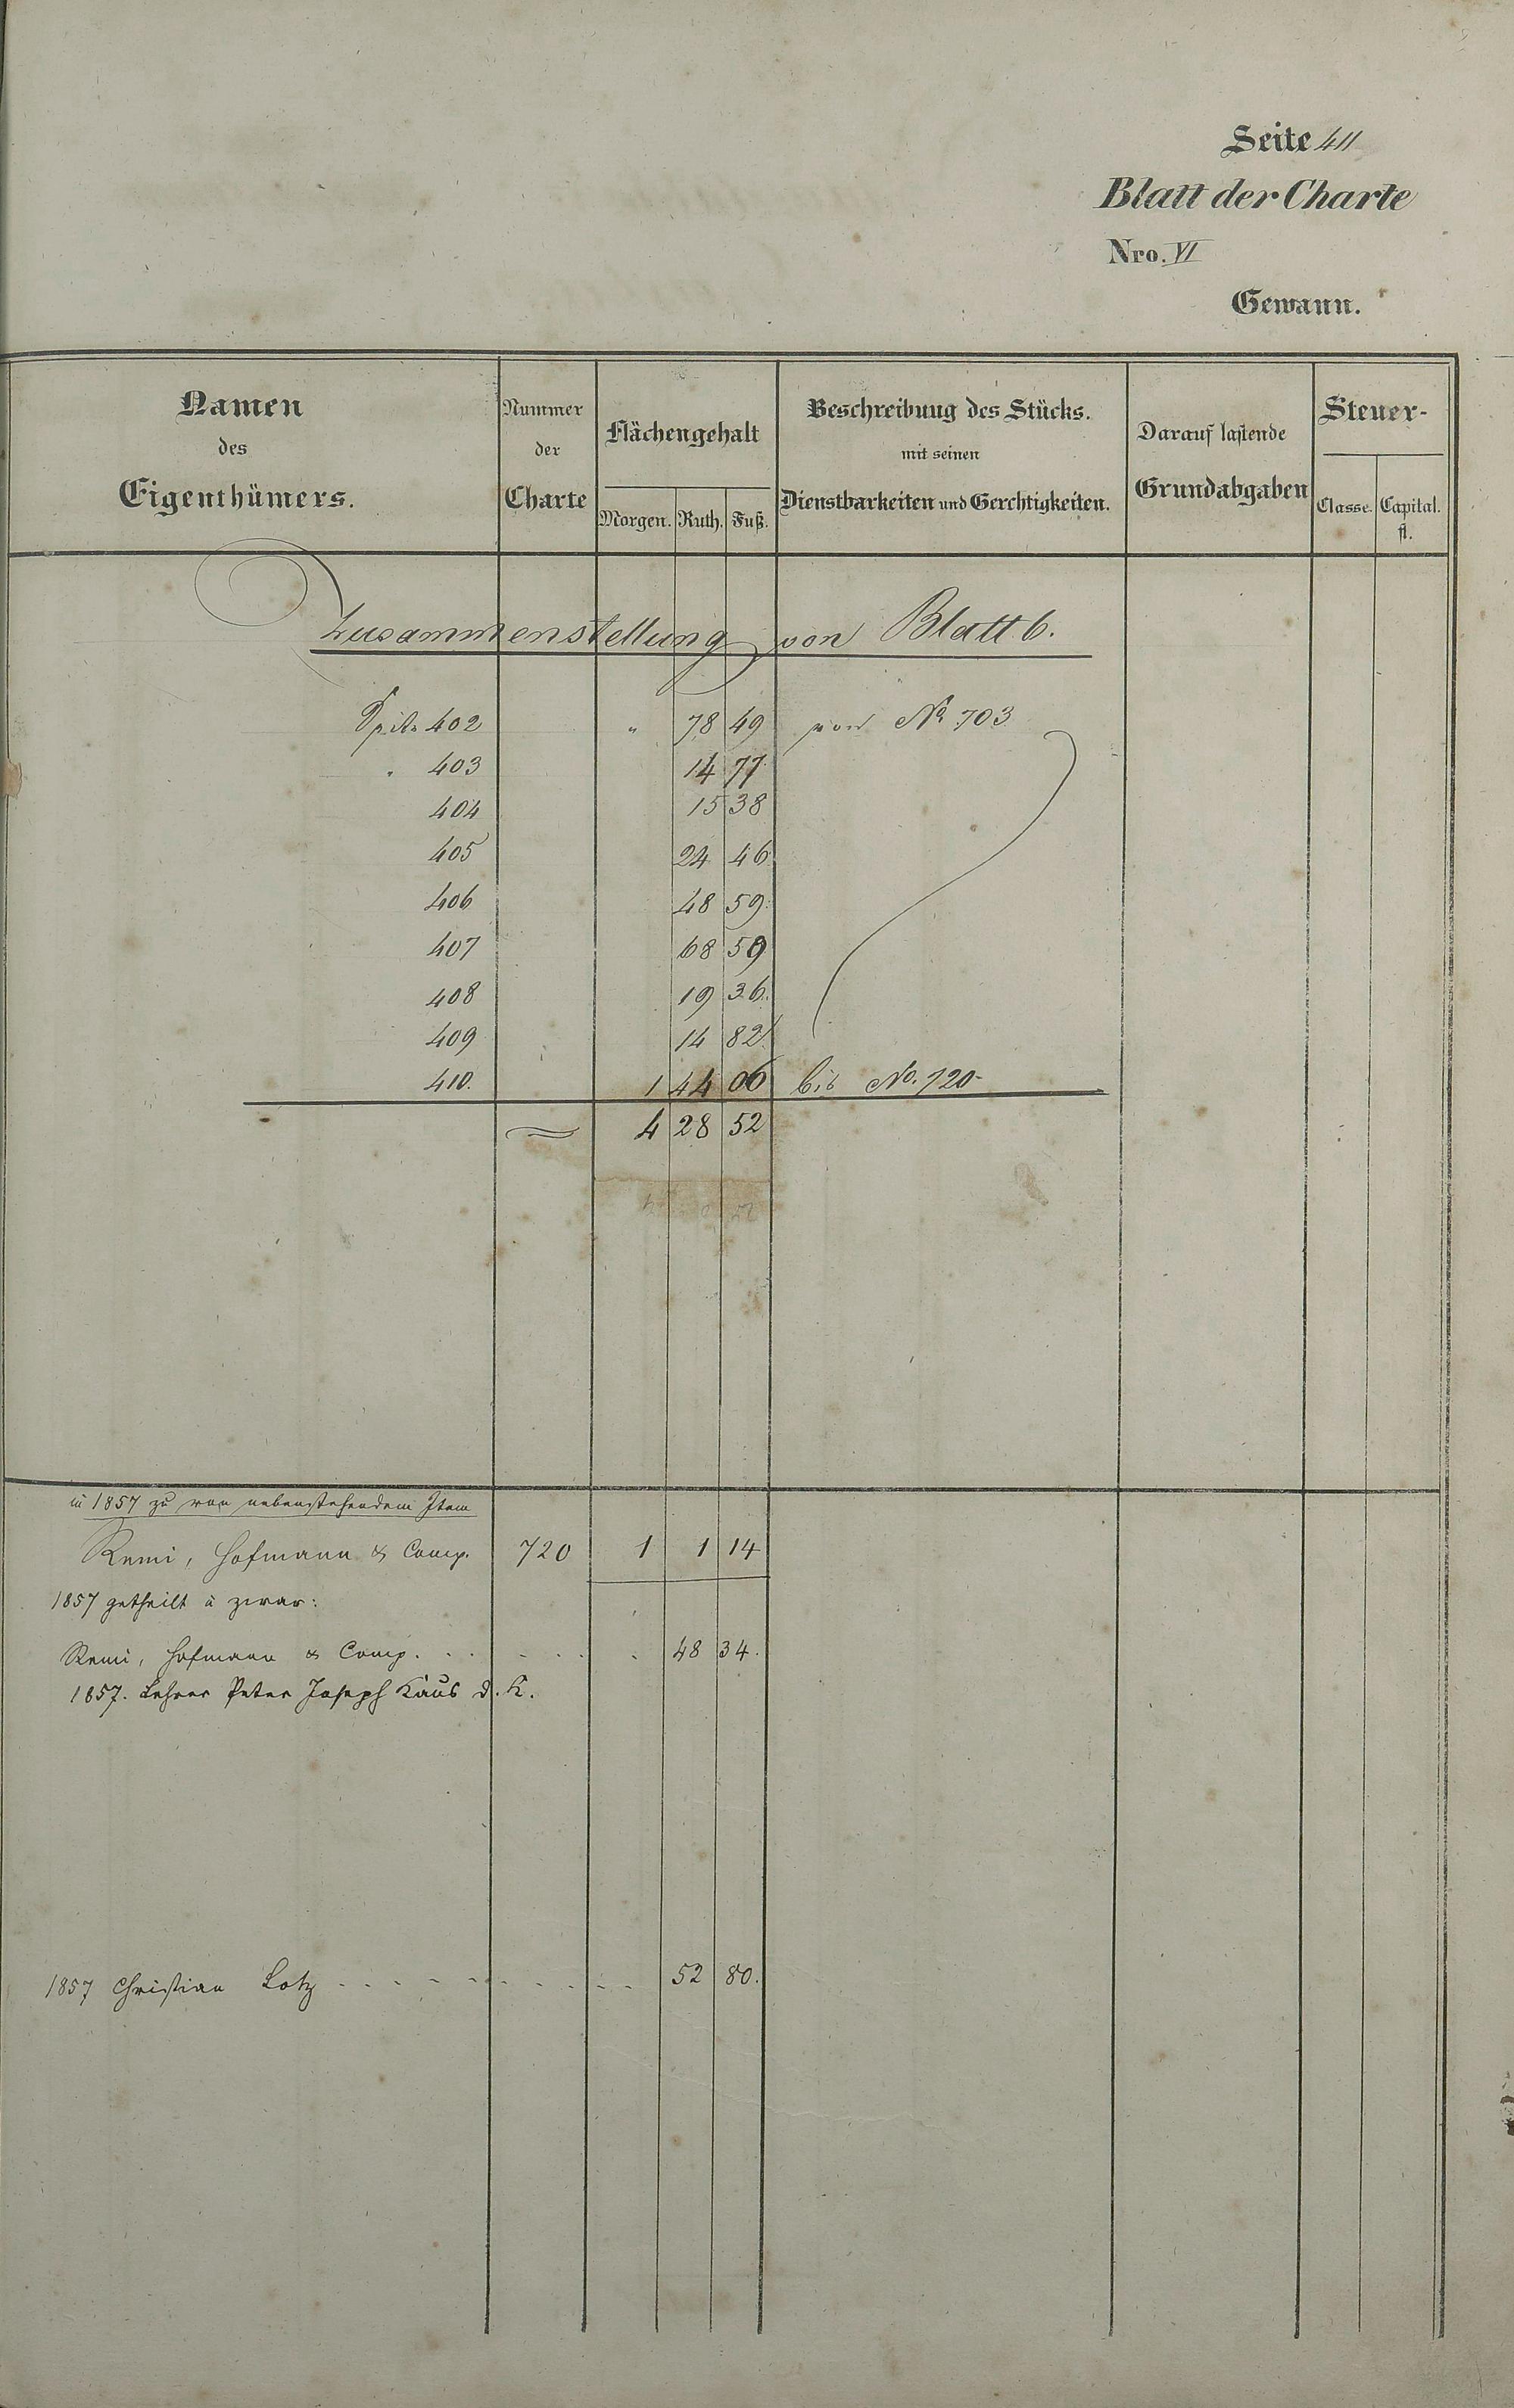 Seite 411
Blatt der Charte
Nro. VI
Gewann.
Namen des Eigenthümers.
Nummer der Charte
Flächengehalt
Morgen. Ruth. Fuß.
Beschreibung des Stücks. mit seinen Dienstbarkeiten und Gerchtigkeiten.
Darauf lastende Grundabgaben
Steuer-
Classe. Capital. fl.
Zusammenstellung von Blatt 6.
Seite 402 " 78 49 von No 703
" 403 14 77
404 15 38
405 24 46
406 48 59
407 68 59
408 19 36
409 14 82
410. 1 44 06 bis No. 720
4 28 52
in 1857 zu von nebenstehendem Item
Remi, Hofmann & Comp. 720 1 1 14
1857 getheilt u zwar:
Remi, Hofmann & Comp. . . . . . . 48 34.
1857. Lehrer Peter Joseph Kaus d. K.
1857 Christian Lotz - - - - - - - - - - 52 80.